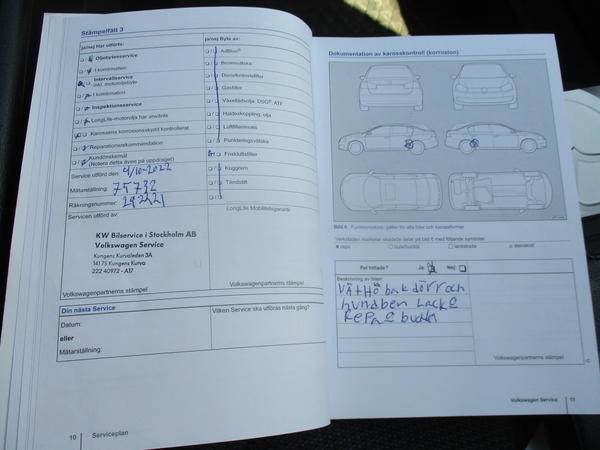 Stämpelfält 3
ja/nej Har utförts:
Oljebytesservice
I kombination
Intervallservice
inkl. motoroljebyte
I kombination
Inspektionsservice
LongLife-motorolja har använts
Karossens korrosionsskydd kontrollerat
Reparationsrekommendation
Kundönskemål
(Notera detta även på uppdraget)
Service utförd den: 4/10-2022
Mätarställning: 75732
Räkningsnummer: 29221
Servicen utförd av:
KW Bilservice i Stockholm AB
Volkswagen Service
Kungens Kurvaleden 3A
141 75 Kungens Kurva
222 40972 - A17
Volkswagenpartnerns stämpel
ja/nej Byte av:
AdBlue®
Bromsvätska
Dieselbränslefilter
Gasfilter
Växellådsolja: DSG®, ATF
Haldexkoppling: olja
Luftfilterinsats
Punkteringsvätska
Friskluftsfilter
Kuggrem
Tändstift
LongLife Mobilitetsgaranti
Volkswagenpartnerns stämpel
Din nästa Service
Datum:
eller
Mätarställning:
Vilken Service ska utföras nästa gång?
10 Serviceplan
Dokumentation av karosskontroll (korrosion)
Bild 6 Funktionsskiss: gäller för alla bilar och karossformer
Verkstaden markerar skadade delar på bild 6 med följande symboler:
x repa
○ bula/buckla
□ lackskada
△ stenskott
Fel hittade? Ja Nej
Beskrivning av felen:
Vä+Hö bakdörr och
hundben Lack o
Repa o buckla
Volkswagenpartnerns stämpel
Volkswagen Service 11